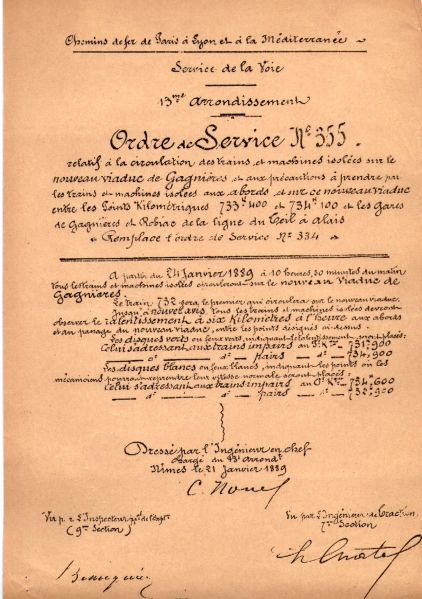 Chemins de fer de Paris à Lyon et à la Méditerranée
Service de la Voie
13me Arrondissement
Ordre de Service No 355
relatif à la circulation des trains et machines isolées sur le
nouveau viaduc de Gagnières et aux précautions à prendre par
les trains et machines isolées aux abords et sur ce nouveau viaduc
entre les Points Kilométriques 733k400 et 734k100 et les gares
de Gagnières et Robiac de la ligne du Teil à Alais
Remplace l'ordre de Service No 334
A partir du 24 Janvier 1889 à 10 heures 30 minutes du matin
tous les trains et machines isolées circuleront sur le nouveau Viaduc de
Gagnières.
Le train 732 sera le premier qui circulera sur le nouveau viaduc
Jusqu'à nouvel avis, tous les trains et machines isolées devront
observer le ralentissement à six Kilomètres à l'heure aux abords
et au passage du nouveau viaduc, entre les points désignés ci-dessus.
Des disques verts ou feux verts, indiquant le ralentissement sont placés:
Celui s'adressant aux trains impairs au Pt Kque 731k900
do pairs do 734.900
Des disques blancs ou feux blancs, indiquant les points où les
mécaniciens pourront reprendre leur vitesse normale seront placés:
Celui s'adressant aux trains impairs au Pt Kque 734k600
do pairs do
Dressé par l'Ingénieur en chef
chargé du 13e Arrondt
Nimes le 21 Janvier 1889
Vu p. r L'Inspecteur ppal de l'Exptn
(9me Section)
Vu par L'Ingénieur de traction
7me Section